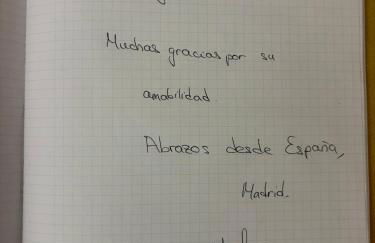 Muchas gracias por su
amabilidad.
Abrazos desde España,
Madrid.